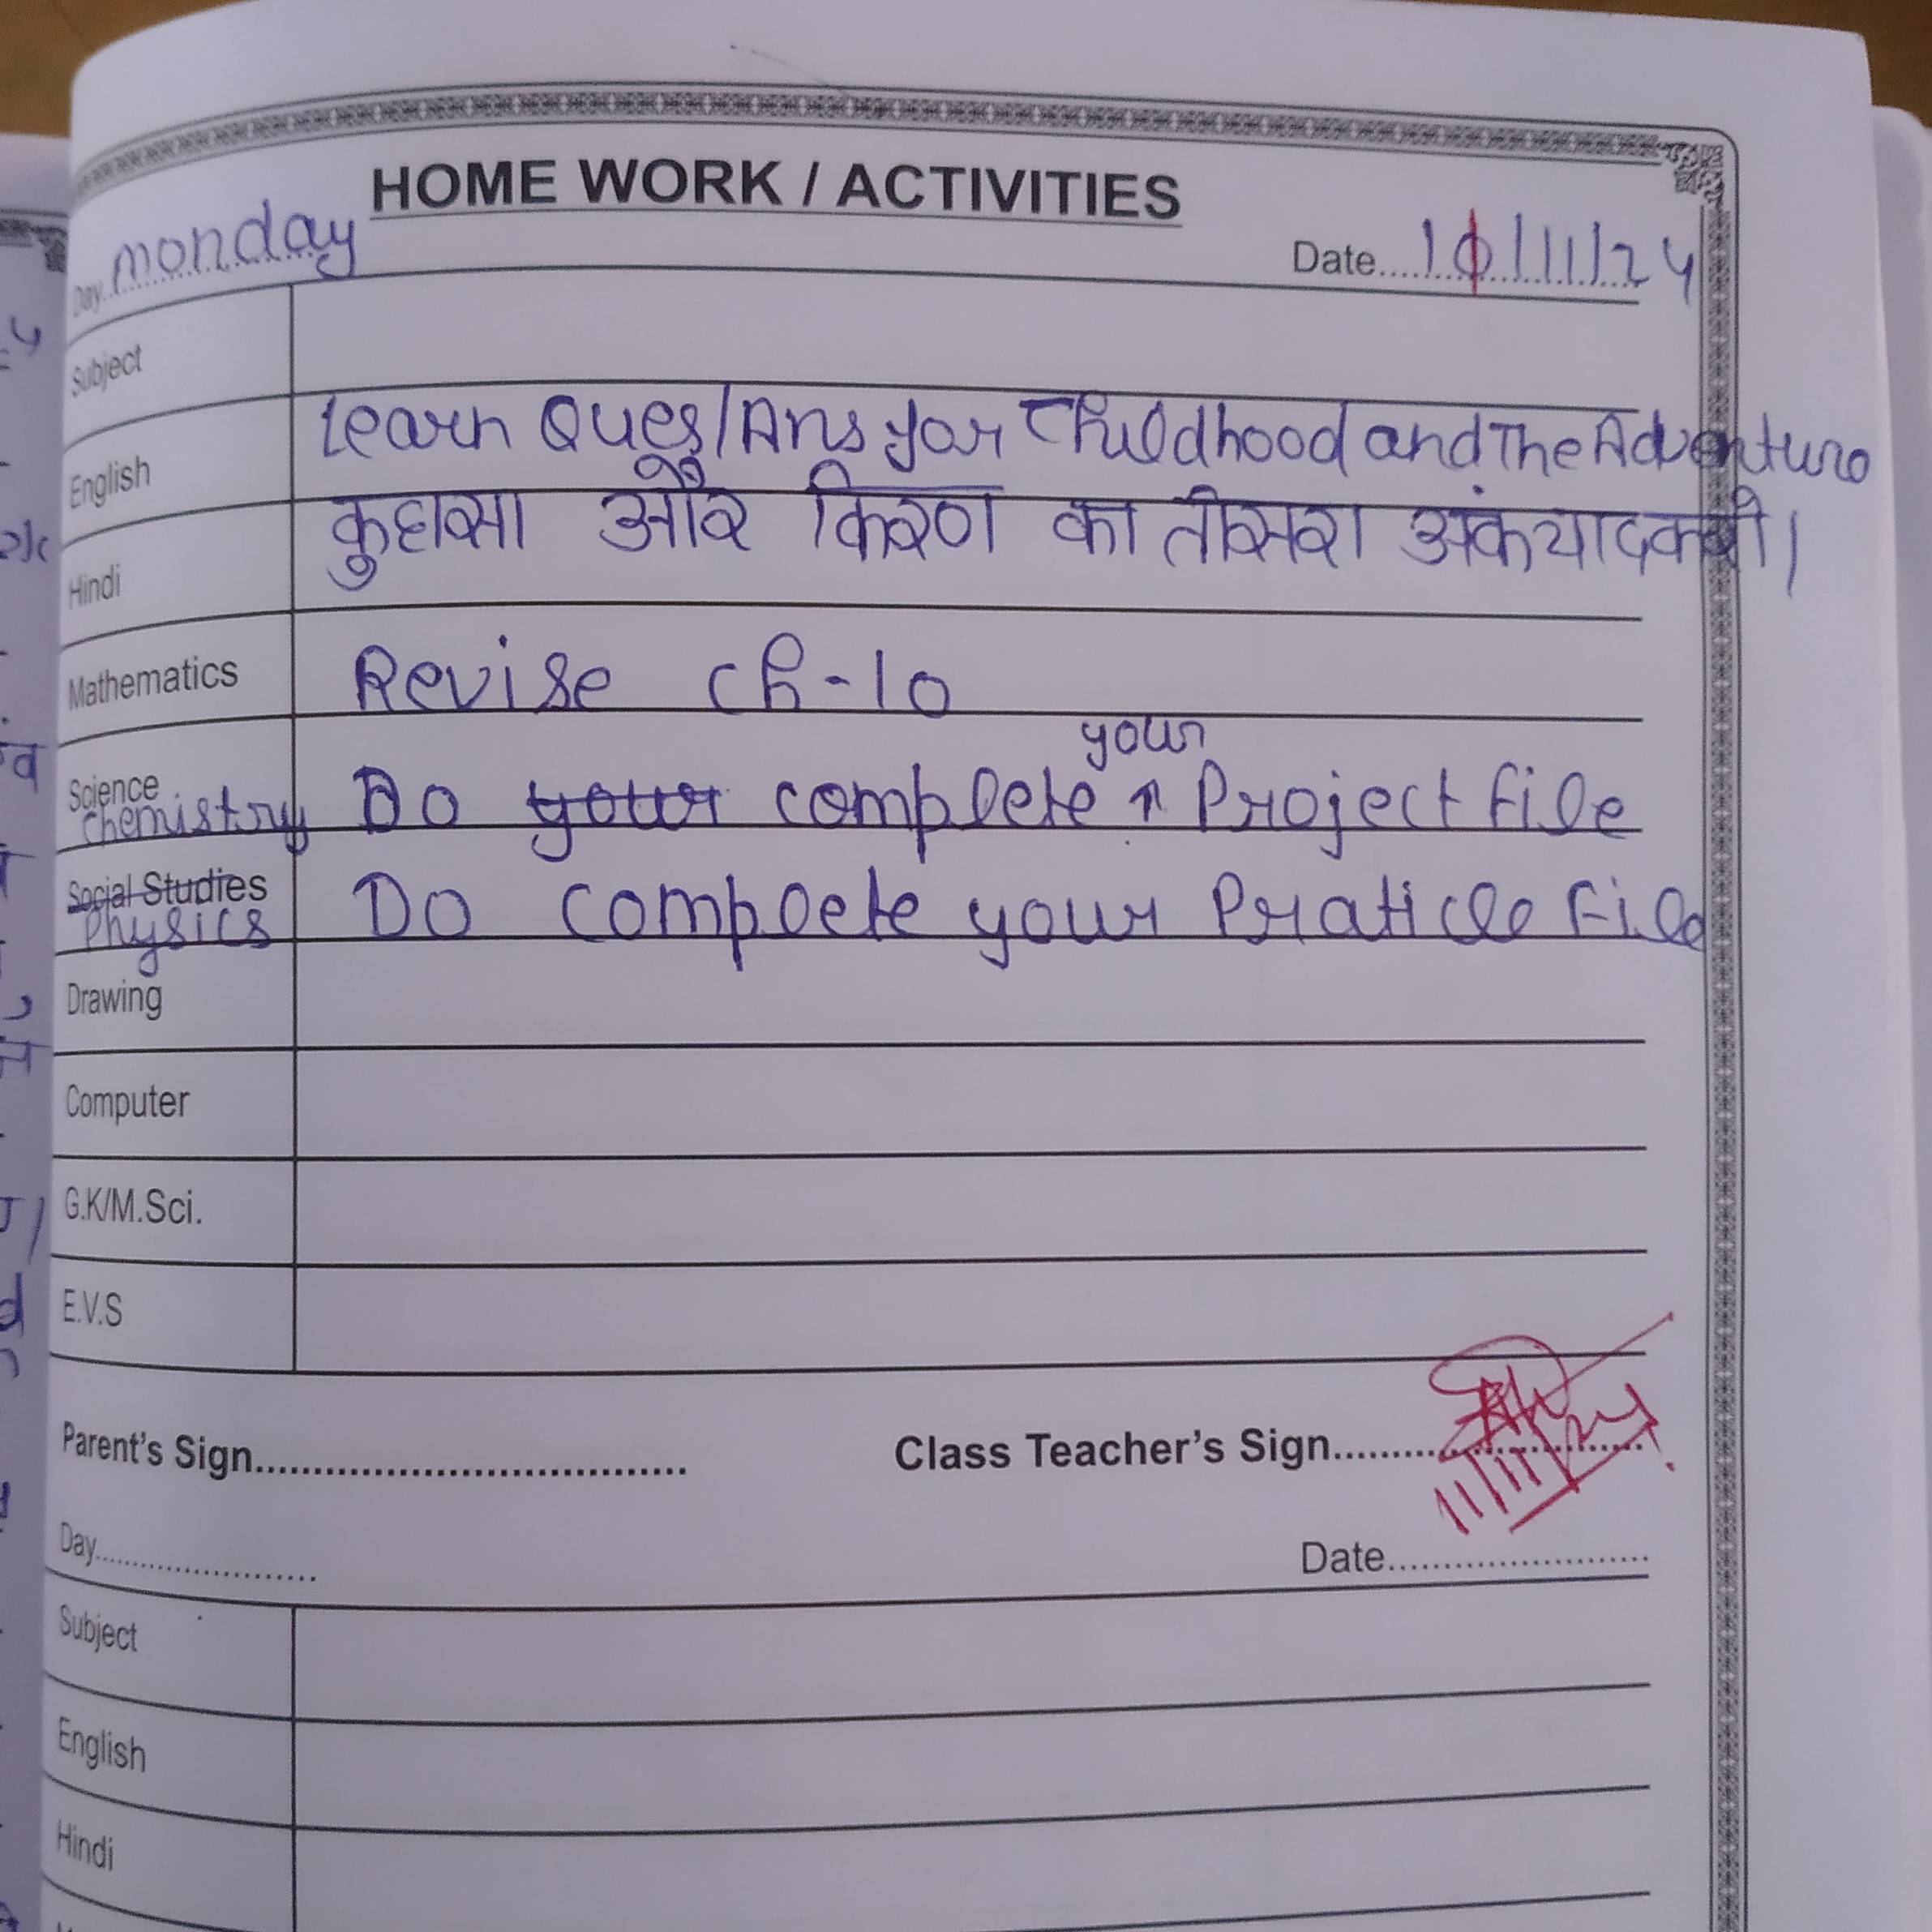 HOME WORK / ACTIVITIES
Day monday Date 11/11/24
Subject
English Learn Ques/Ans for Childhood and The Adventure
Hindi कुहासा और किरण का तीसरा अंक याद करो।
Mathematics Revise ch-10
your
Science chemistry Do your complete Project file
Social Studies Physics Do complete your Praticle File
Drawing
Computer
G.K/M.Sci.
E.V.S
Parent's Sign Class Teacher's Sign
11/11/24
Day Date
Subject
English
Hindi